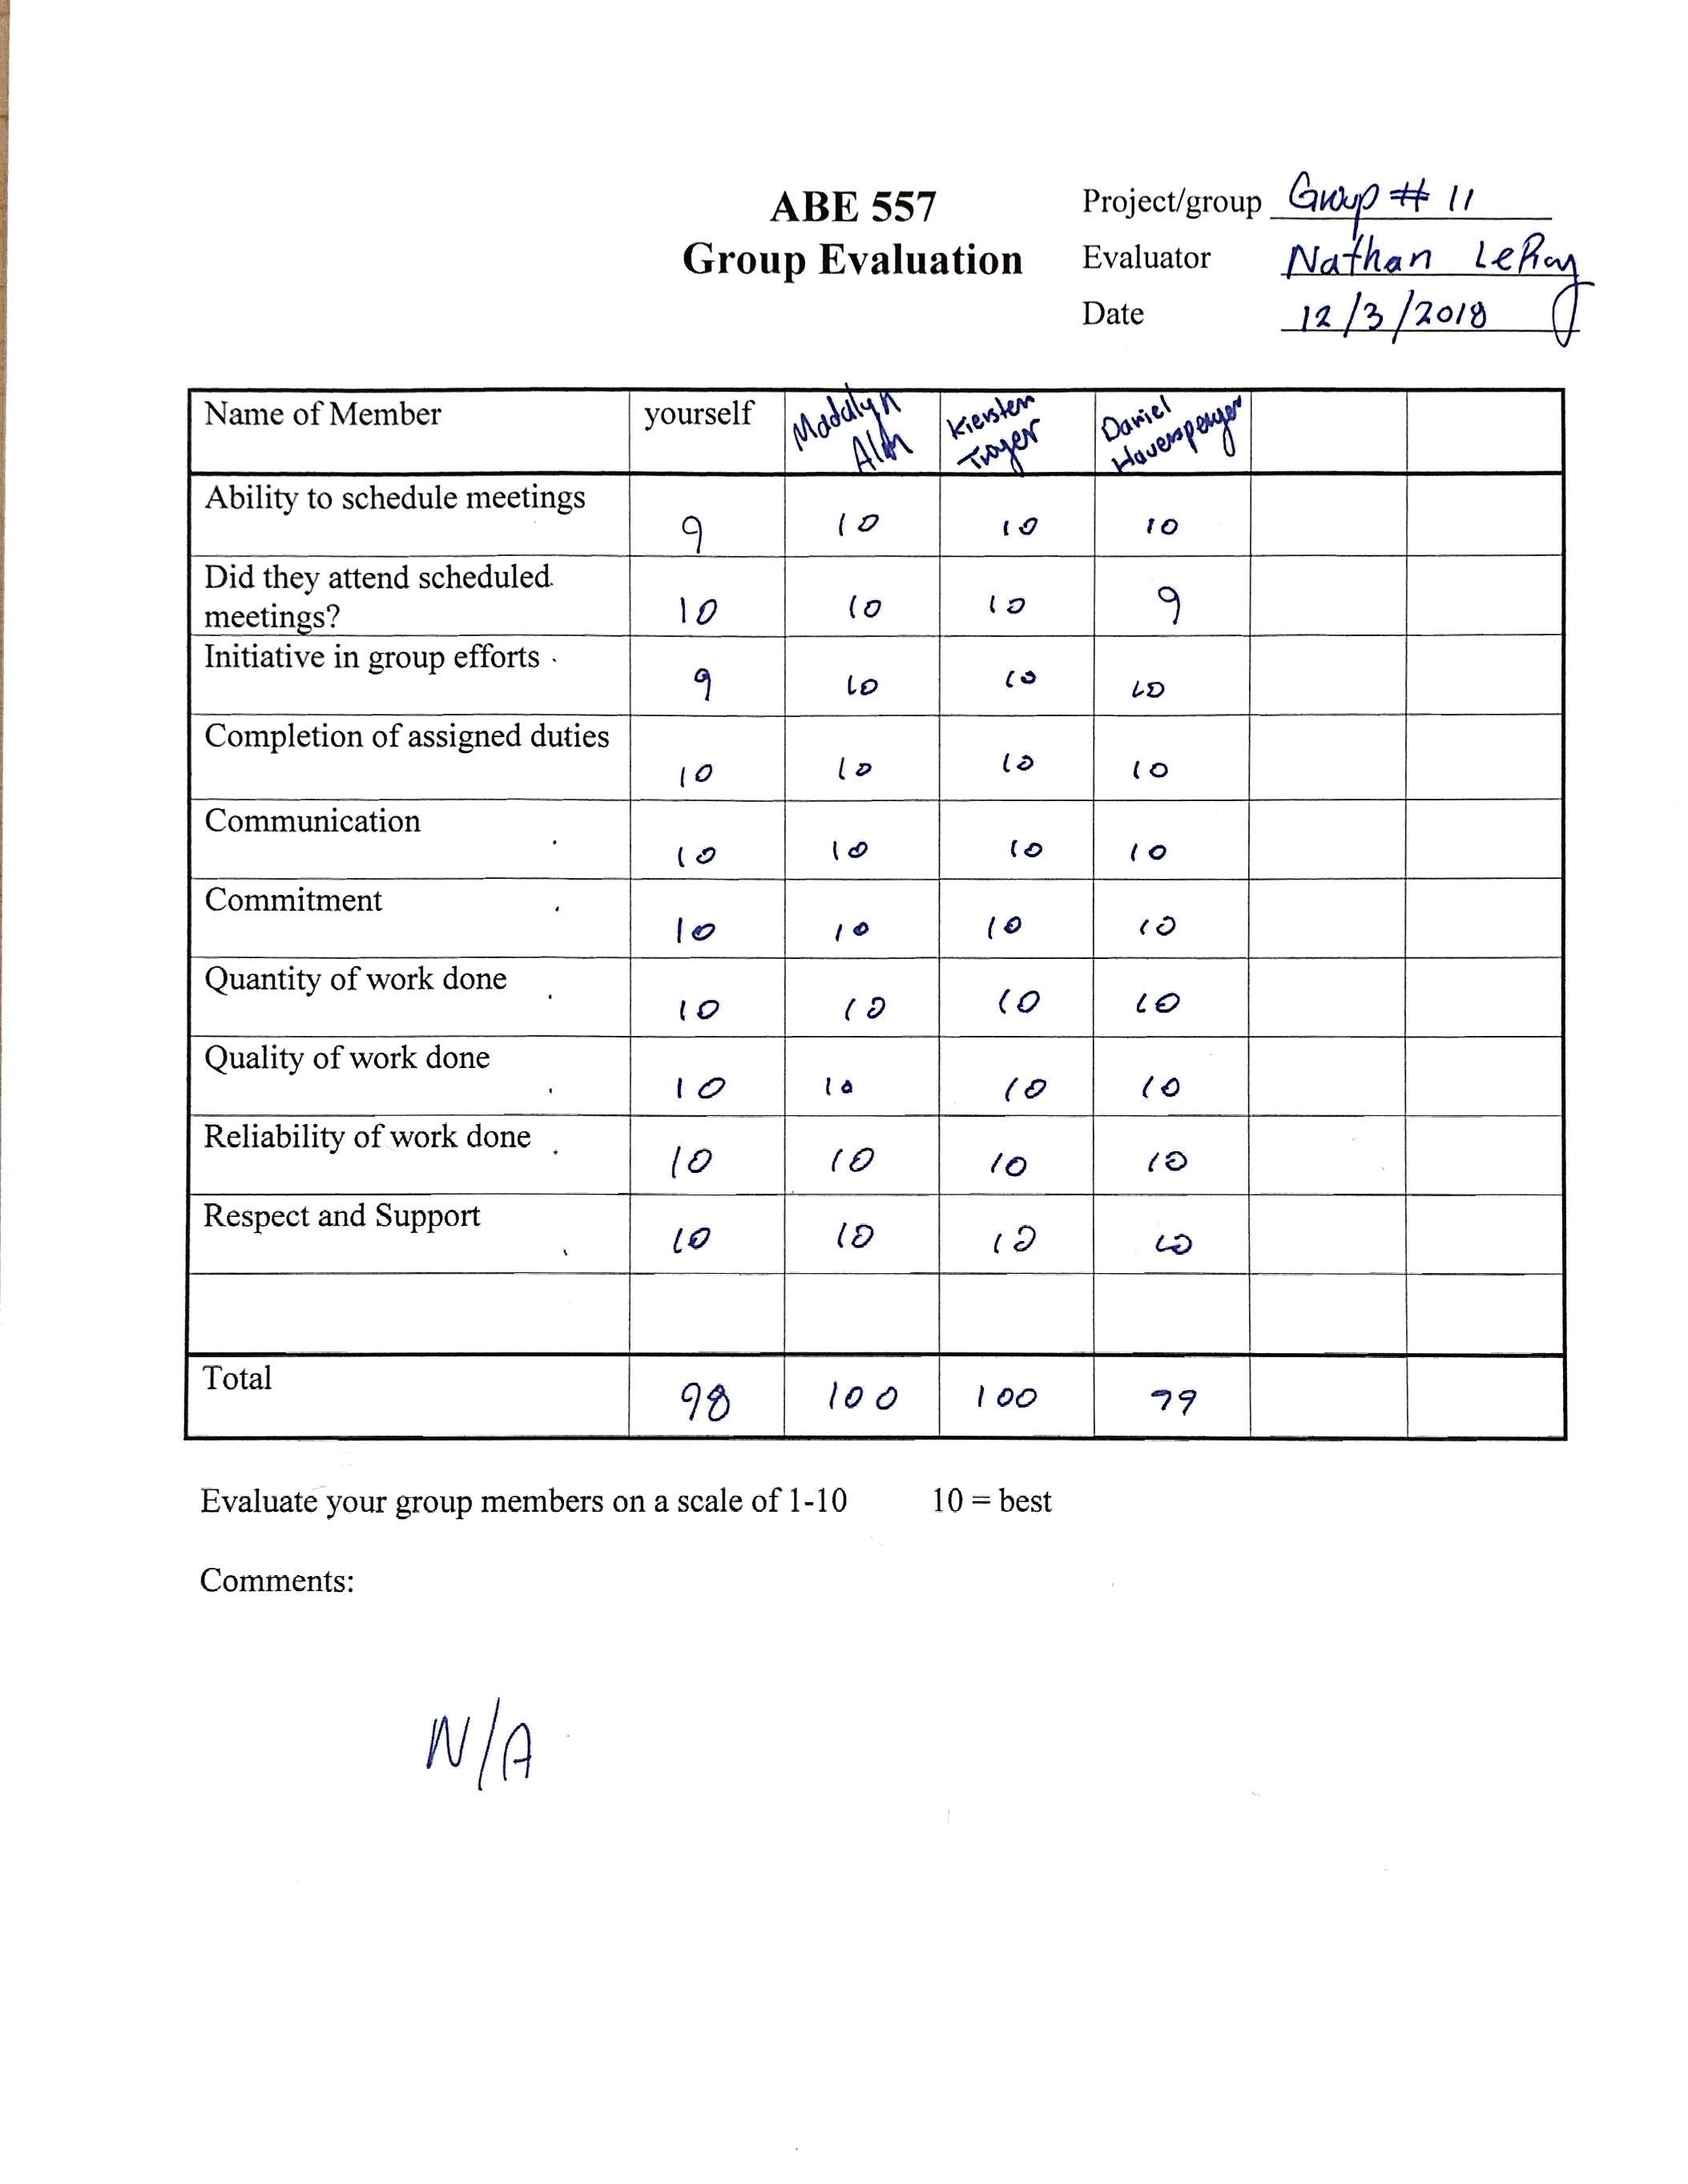 ABE 557
Group Evaluation
Project/group Group # 11
Evaluator Nathan LeRoy
Date 12/3/2018
Name of Member yourself Madalyn Alm Kiersten Troyer Daniel Haversperger
Ability to schedule meetings 9 10 10 10
Did they attend scheduled
meetings? 10 10 10 9
Initiative in group efforts 9 10 10 10
Completion of assigned duties 10 10 10 10
Communication 10 10 10 10
Commitment 10 10 10 10
Quantity of work done 10 10 10 10
Quality of work done 10 10 10 10
Reliability of work done 10 10 10 10
Respect and Support 10 10 10 10
Total 98 100 100 99
Evaluate your group members on a scale of 1-10 10 = best
Comments:
N/A